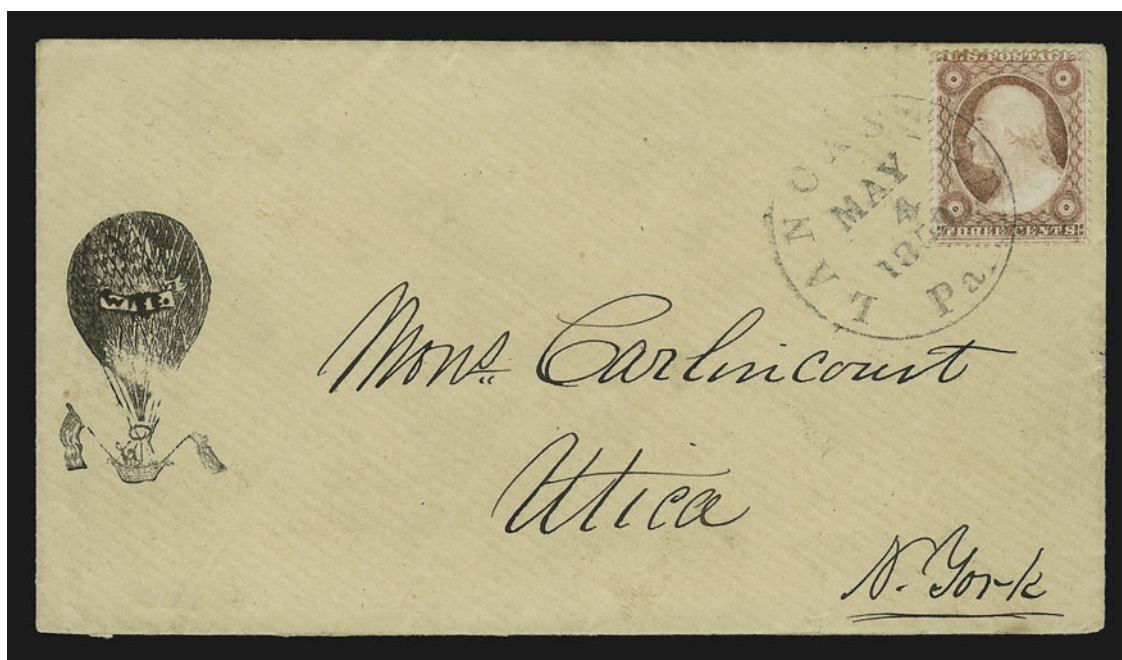 U.S. POSTAGE
THREE CENTS
LANCASTER Pa.
MAY
4
Mons. Carlincourt
Utica
N. York